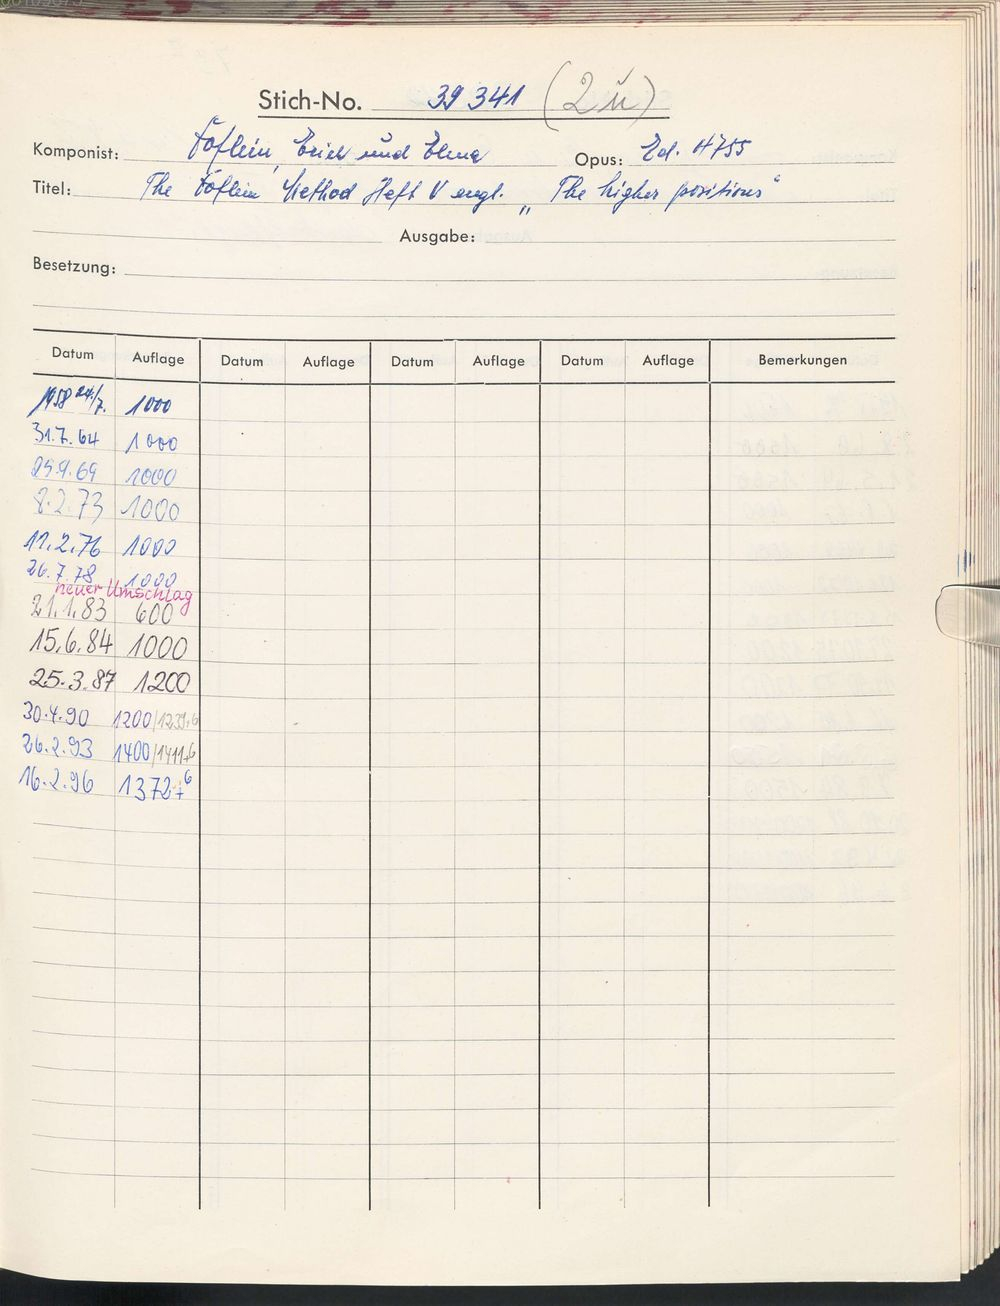 Stich-No. 39 341 (2 ü)
Komponist: Doflein, Erich und Elma Opus: Ed. 4755
Titel: The Doflein Method Heft V engl. „The higher positions“
Ausgabe:
Besetzung:
Datum Auflage Datum Auflage Datum Auflage Datum Auflage Bemerkungen
1958 24./7. 1000
31.7.64 1000
29.9.69 1000
8.2.73 1000
11.2.76 1000
26.7.78 1000
neuer Umschlag
21.1.83 600
15.6.84 1000
25.3.87 1200
30.4.90 1200/1239+6
26.2.93 1400/1411+6
16.2.96 1372+6